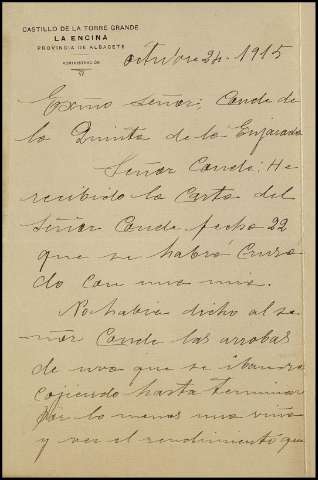 CASTILLO DE LA TORRE GRANDE
LA ENCINA
PROVINCIA DE ALBACETE
ADMINISTRACION
octubre 24. 1915
Exmo Señor; Conde de
la Quinta de la Enjarada
Señor Conde: He
recibido la carta del
señor Conde fecha 22
que se habrá cruza
do con una mia.
No habia dicho al se
ñor Conde las arrobas
de uva que se iban
cojiendo hasta terminar
por lo menos una viña
y ver el rendimiento que